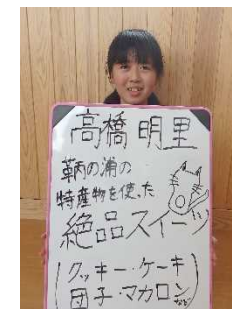 高橋 明里
鞆の浦の
特産物を使った
絶品スイーツ
(クッキー・ケーキ
団子・マカロンなど)